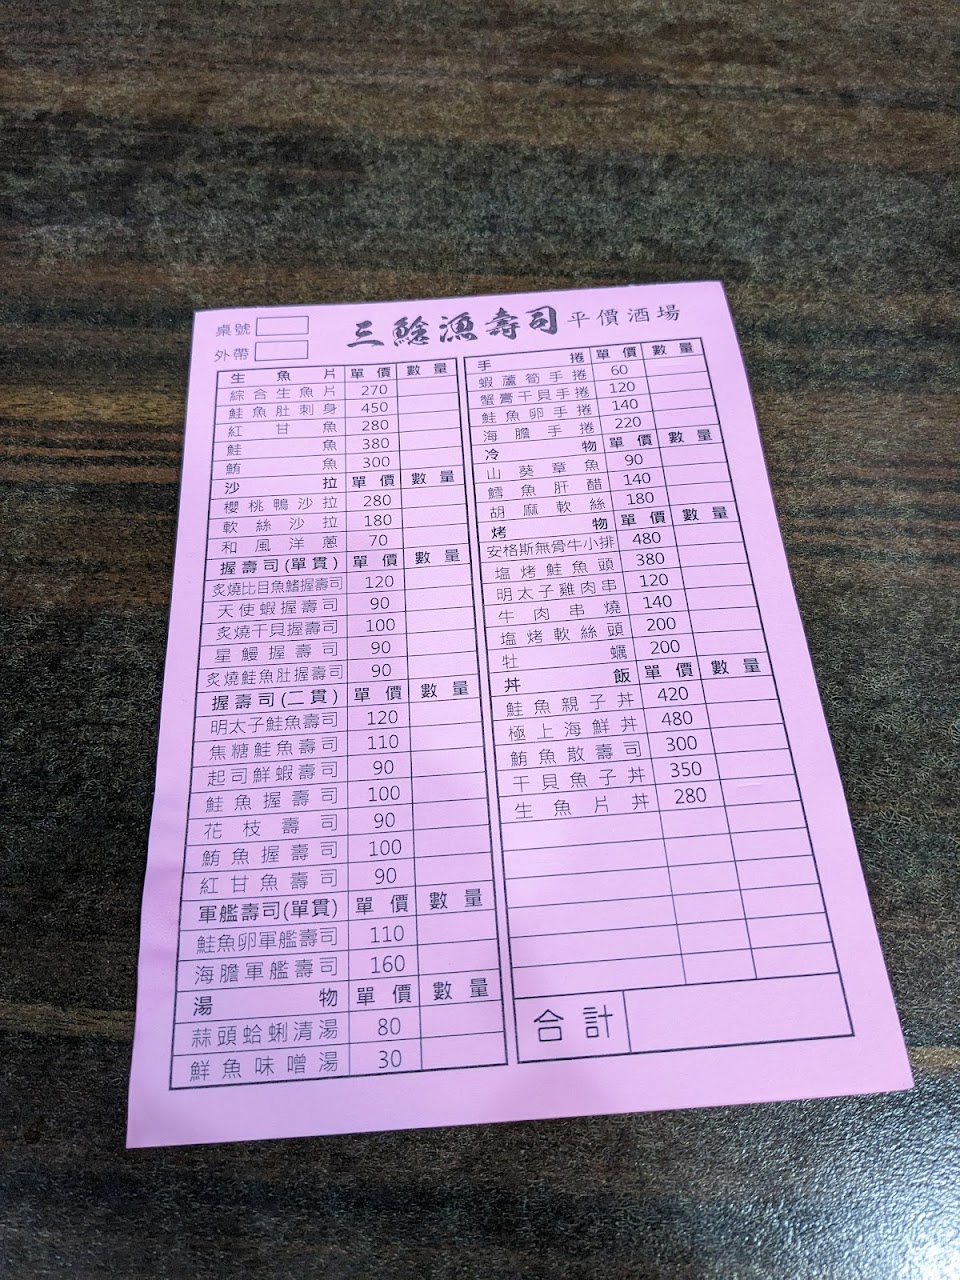 桌號
外帶
三鯰漁壽司 平價酒場
生魚片 單價 數量
綜合生魚片 270
鮭魚肚刺身 450
紅甘魚 280
鮭魚 380
鮪魚 300
沙拉 單價 數量
櫻桃鴨沙拉 280
軟絲沙拉 180
和風洋蔥 70
握壽司(單貫) 單價 數量
炙燒比目魚鰭握壽司 120
天使蝦握壽司 90
炙燒干貝握壽司 100
星鰻握壽司 90
炙燒鮭魚肚握壽司 90
握壽司(二貫) 單價 數量
明太子鮭魚壽司 120
焦糖鮭魚壽司 110
起司鮮蝦壽司 90
鮭魚握壽司 100
花枝壽司 90
鮪魚握壽司 100
紅甘魚壽司 90
軍艦壽司(單貫) 單價 數量
鮭魚卵軍艦壽司 110
海膽軍艦壽司 160
湯物 單價 數量
蒜頭蛤蜊清湯 80
鮮魚味噌湯 30
手捲 單價 數量
蝦蘆筍手捲 60
蟹膏干貝手捲 120
鮭魚卵手捲 140
海膽手捲 220
冷物 單價 數量
山葵章魚 90
鱈魚肝醋 140
胡麻軟絲 180
烤物 單價 數量
安格斯無骨牛小排 480
塩烤鮭魚頭 380
明太子雞肉串 120
牛肉串燒 140
塩烤軟絲頭 200
牡蠣 200
丼飯 單價 數量
鮭魚親子丼 420
極上海鮮丼 480
鮪魚散壽司 300
干貝魚子丼 350
生魚片丼 280
合計